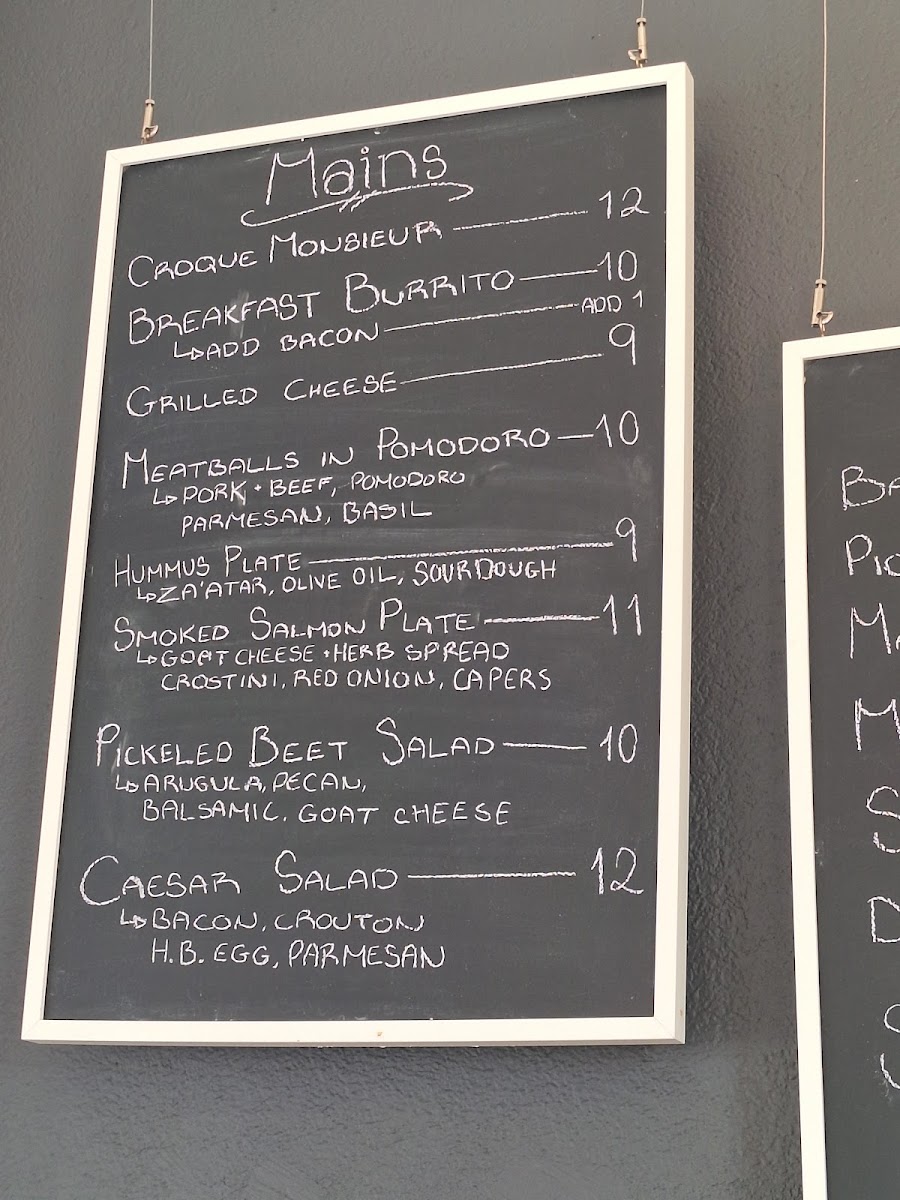 Mains
CROQUE MONSIEUR 12
BREAKFAST BURRITO 10
ADD BACON ADD 1
GRILLED CHEESE 9
MEATBALLS IN POMODORO 10
PORK + BEEF, POMODORO
PARMESAN, BASIL
HUMMUS PLATE 9
ZA'ATAR, OLIVE OIL, SOURDOUGH
SMOKED SALMON PLATE 11
GOAT CHEESE + HERB SPREAD
CROSTINI, RED ONION, CAPERS
PICKELED BEET SALAD 10
ARUGULA, PECAN,
BALSAMIC, GOAT CHEESE
CAESAR SALAD 12
BACON, CROUTON
H.B. EGG, PARMESAN